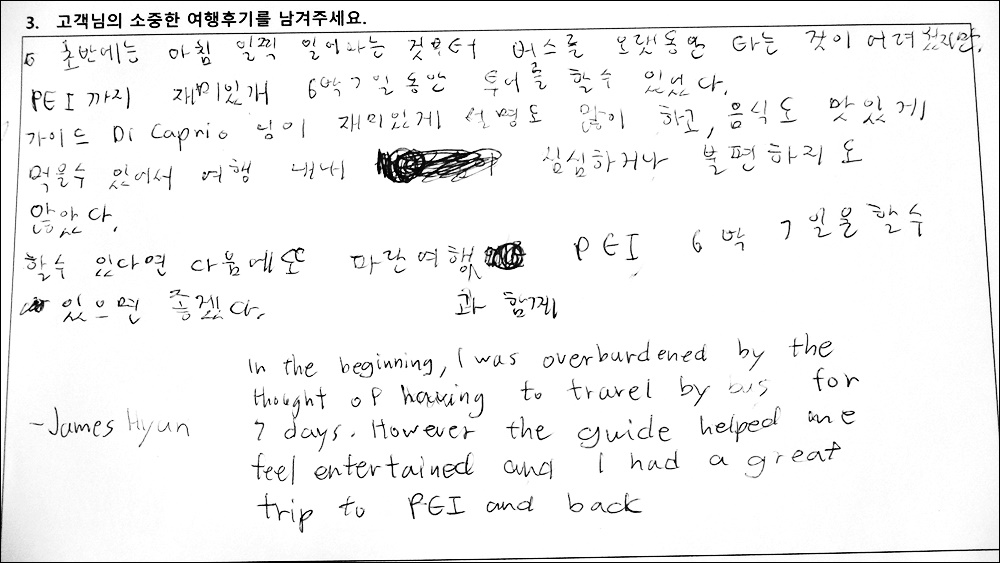 3. 고객님의 소중한 여행후기를 남겨주세요.
초반에는 아침 일찍 일어나는 것부터 버스를 오랫동안 타는 것이 어려웠지만,
PEI까지 재미있개 6박 7일 동안 투어를 할수 있었다.
가이드 Di Caprio 님이 재미있게 설명도 많이 하고, 음식도 맛있게
먹을수 있어서 여행 내내 심심하거나 불편하지도
않았다.
할수 있다면 다음에도 파란여행 PEI 6박 7일을 할수
있으면 좋겠다. 과 함께
In the beginning, I was overburdened by the
thought of having to travel by bus for
-James Hyun 7 days. However the guide helped me
feel entertained and I had a great
trip to PEI and back